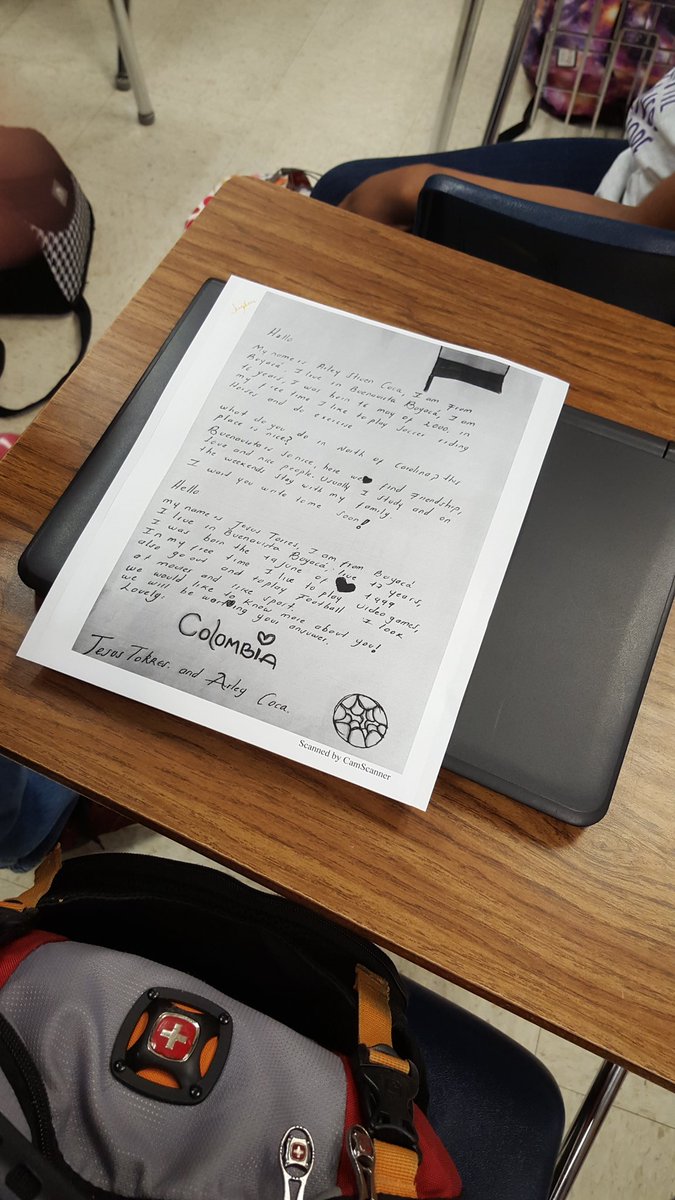 Hello
My name is Arley Stiven Coca, I am From
Boyacá. I live in Buenavista Boyacá, I am
16 years, I was born 16 may of 2000. in
my free time I like to play soccer riding
Horses and do exercise
what do you do in North of Carolina? this
place is nice?
Buenavista is so nice, here we find Friendship,
love and nice people. Usually I study and on
the weekends stay with my family.
I want you write to me soon!
Hello
my name is Jesus Torres, I am from Boyacá
I live in Buenavista Boyacá. I've 17 years,
I was born the 14 June of 1999
In my free time I like to play video games,
also go out and to play Football. I look
at movies and like sport.
we would like to know more about you!
we will be waiting your answer.
Lovely.
COLOMBIA
Jesus Torres. and Arley Coca.
Scanned by CamScanner